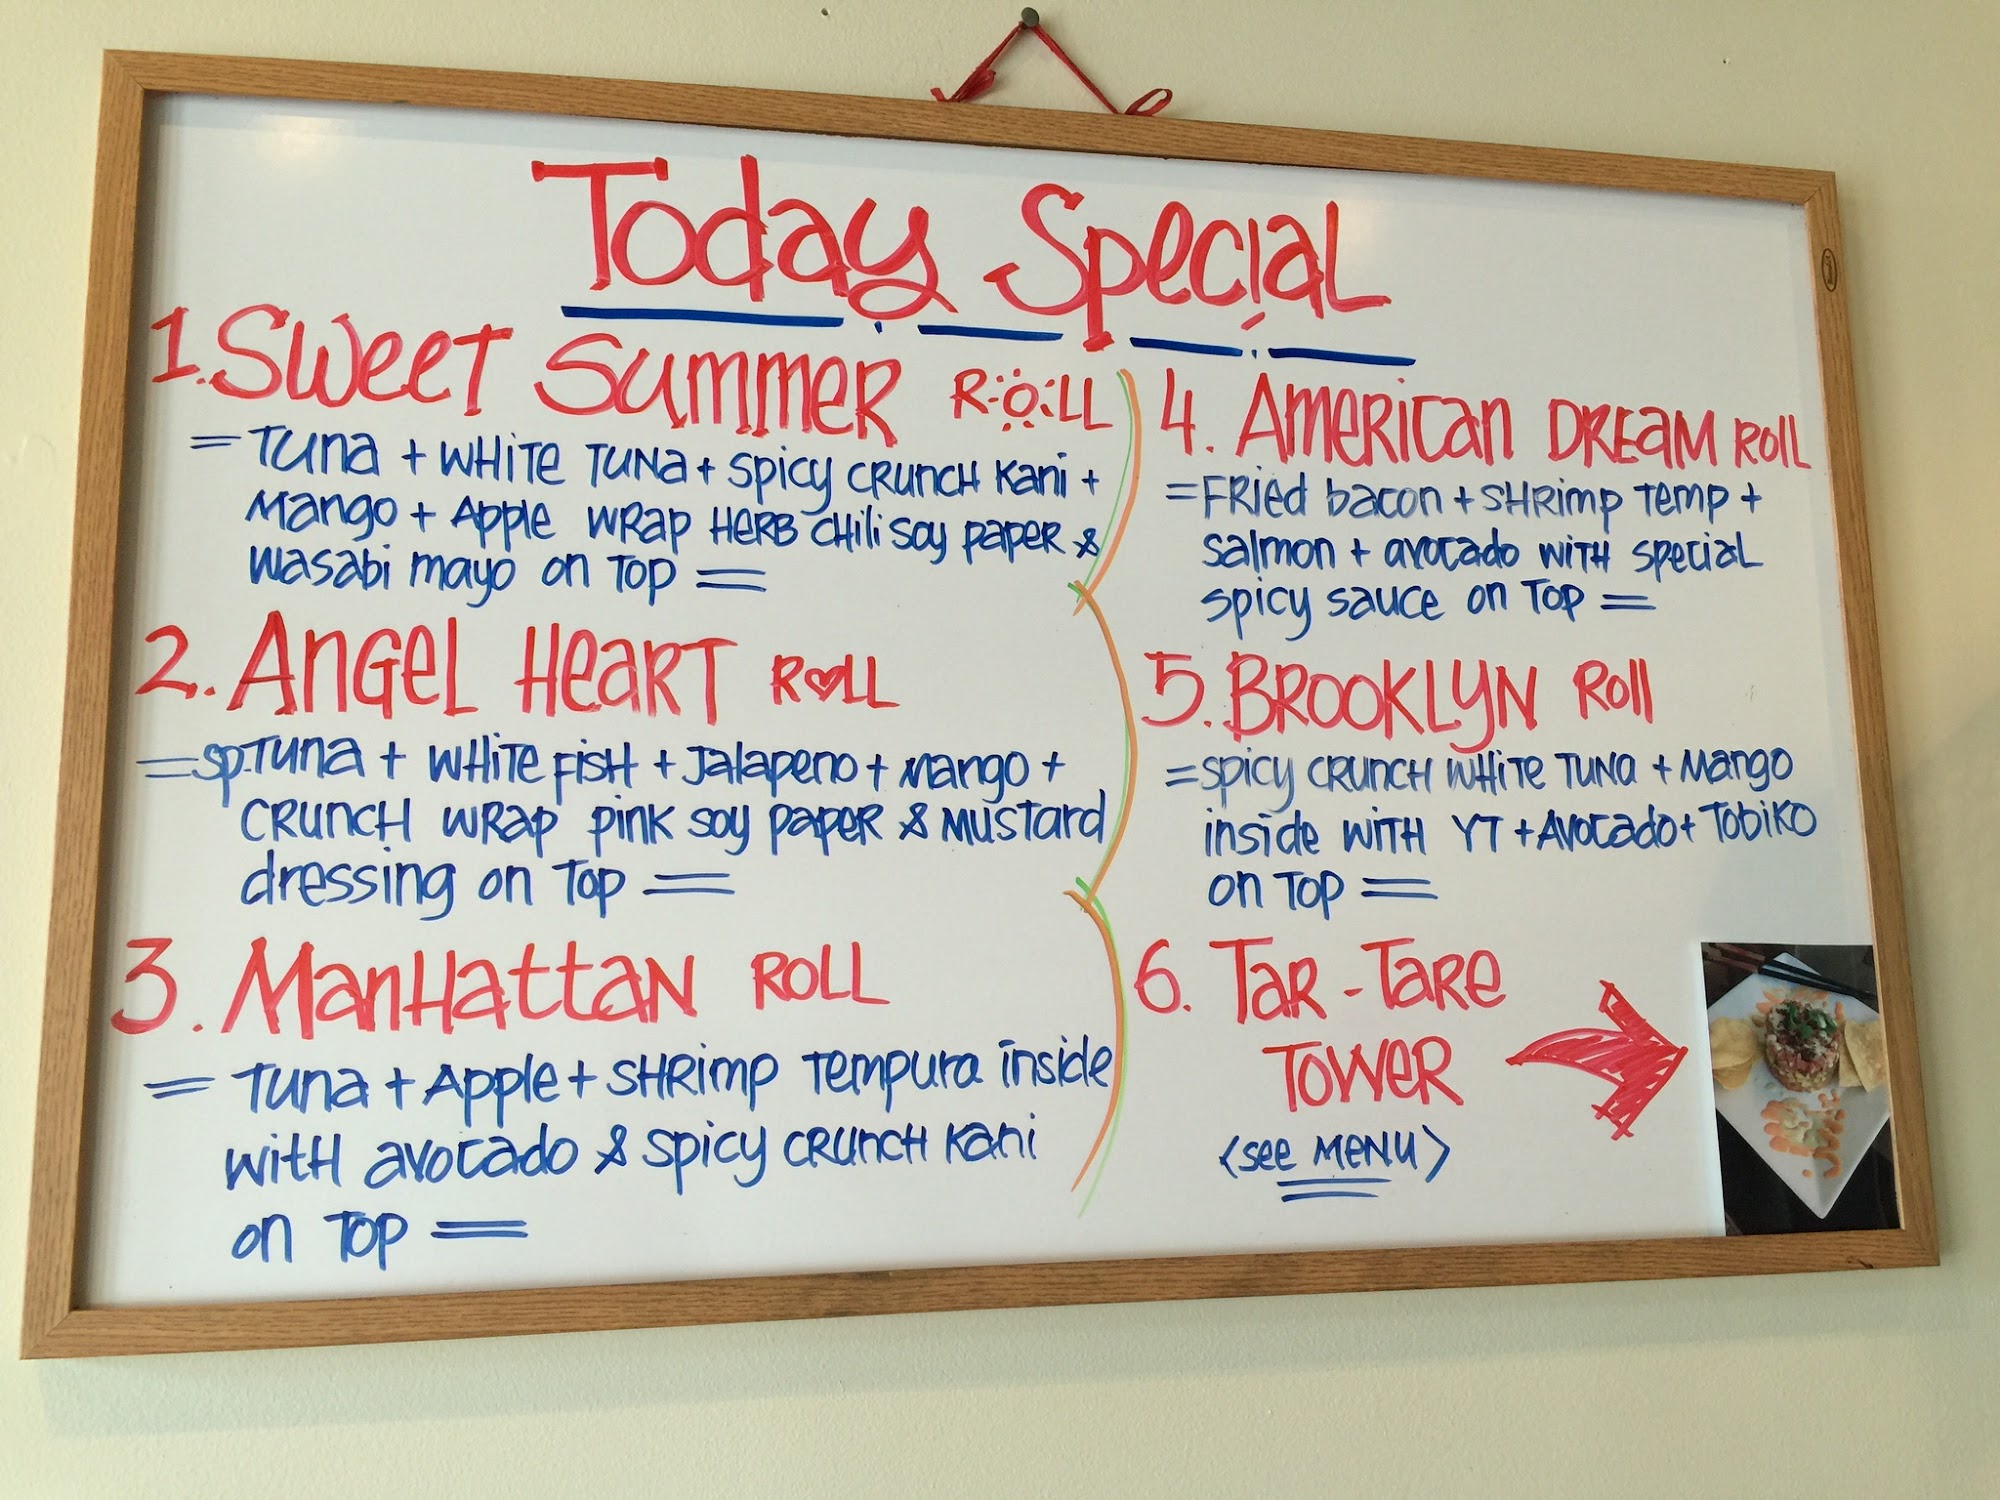 Today Special
1. Sweet Summer Roll
= Tuna + White Tuna + Spicy Crunch Kani +
Mango + Apple wrap Herb Chili Soy paper &
Wasabi mayo on Top =
2. Angel Heart R♡LL
= sp. Tuna + White Fish + Jalapeno + Mango +
Crunch wrap pink soy paper & Mustard
dressing on Top =
3. Manhattan Roll
= Tuna + Apple + Shrimp Tempura inside
with avocado & spicy crunch Kani
on Top =
4. American Dream Roll
= Fried bacon + Shrimp Temp +
Salmon + avocado with special
spicy sauce on Top =
5. Brooklyn Roll
= Spicy Crunch White Tuna + Mango
inside with YT + Avocado + Tobiko
on Top =
6. Tar-Tare
Tower
<see MENU>